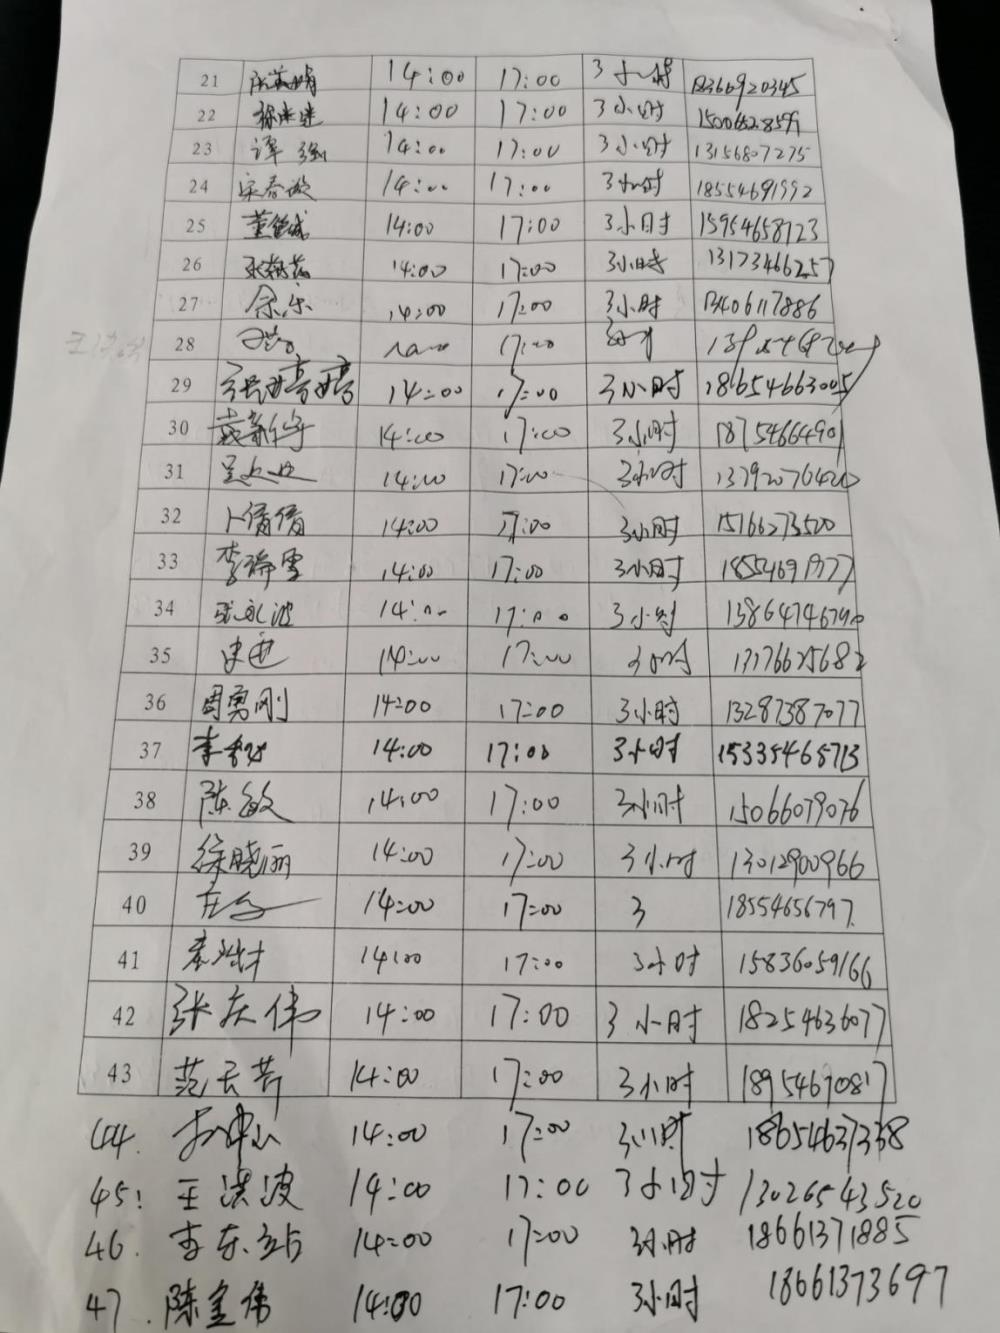 21 14:00 17:00 3小时
22 14:00 17:00 3小时
23 谭强 14:00 17:00 3小时 13156807275
24 宋春波 14:00 17:00 3小时 18554691992
25 14:00 17:00 3小时 15954658723
26 14:00 17:00 3小时 13173466257
27 余乐 14:00 17:00 3小时 13406117886
28 17:00
29 张婷婷 14:00 17:00 3小时 18654663005
30 14:00 17:00 3小时 18754664901
31 14:00 17:00 3小时
32 卜倩倩 14:00 17:00 3小时 15166273500
33 李瑞雪 14:00 17:00 3小时 18554691977
34 张永波 14:00 17:00 3小时 13864746790
35 14:00 17:00 3小时 13176625682
36 周勇刚 14:00 17:00 3小时 13287387077
37 14:00 17:00 3小时 15335465713
38 陈敏 14:00 17:00 3小时 15066079076
39 徐晓丽 14:00 17:00 3小时 13012900966
40 14:00 17:00 3 18554656797
41 14:00 17:00 3小时 15836059166
42 张庆伟 14:00 17:00 3小时 18254636077
43 范天芳 14:00 17:00 3小时 18954670817
44. 14:00 17:00 3小时 18654637338
45: 王洪波 14:00 17:00 3小时 13026543520
46. 14:00 17:00 3小时 18661371885
47. 陈奎伟 14:00 17:00 3小时 18661373697